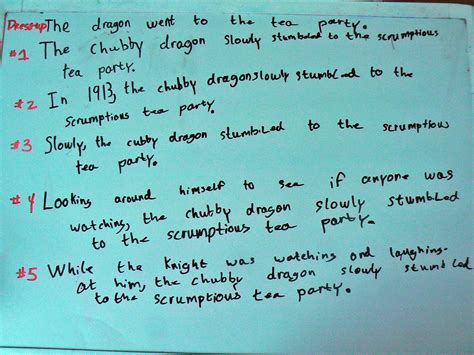 Dress-up The dragon went to the tea party.
#1 The chubby dragon slowly stumbled to the scrumptious
tea party.
#2 In 1913, the chubby dragon slowly stumbled to the
scrumptious tea party.
#3 Slowly, the cubby dragon stumbled to the scrumptious
tea party.
#4 Looking around himself to see if anyone was
watching, the chubby dragon slowly stumbled
to the scrumptious tea party.
#5 While the Knight was watching and laughing
at him, the chubby dragon slowly stumbled
to the scrumptious tea party.